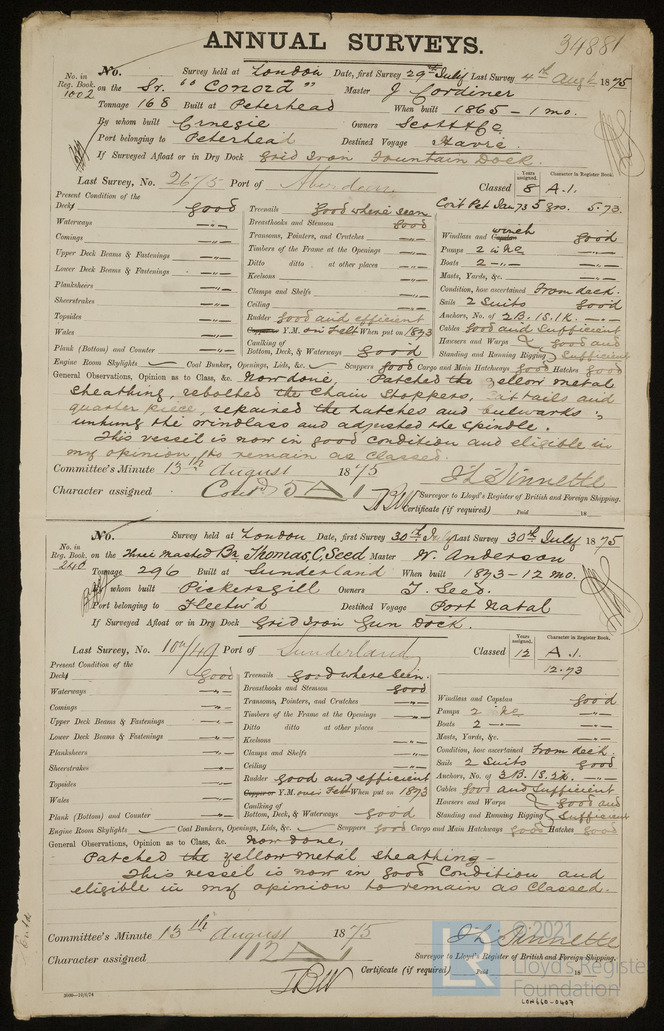 ANNUAL SURVEYS.
34881
No. in Reg. Book 1002
No. Survey held at London Date, first Survey 29th July Last Survey 4th Augt 1875
on the Sr. "Conord" Master J Cordiner
Tonnage 168 Built at Peterhead When built 1865 - 1 mo.
By whom built Carnegie Owners Scott & Co.
Port belonging to Peterhead Destined Voyage Havre.
If Surveyed Afloat or in Dry Dock Grid Iron Fountain Dock.
Last Survey, No. 2675 Port of Aberdeen Classed Years assigned. 8 Character in Register Book. A.1.
Present Condition of the
Contd Pet Jan 73 5 yrs. 5.73
Deck good Treenails good where seen
Waterways -"- Breasthooks and Stemson good Windlass and Capstan winch good
Comings -"- Transoms, Pointers, and Crutches -"- Pumps 2 in no -"-
Upper Deck Beams & Fastenings -"- Timbers of the Frame at the Openings -"- Boats 2 -"- -"-
Lower Deck Beams & Fastenings -"- Ditto ditto at other places -"- Masts, Yards, &c. -"-
Planksheers -"- Keelsons -"- Condition, how ascertained From deck.
Sheerstrakes -"- Clamps and Shelfs -"- Sails 2 Suits good
Topsides -"- Ceiling -"- Anchors, No. of 2B. 1S. 1K. -"-
Wales -"- Rudder good and efficient Cables good and Sufficient
Copper or Y.M. on Felt When put on 1873 Hawsers and Warps good and
Plank (Bottom) and Counter -"- Caulking of Bottom, Deck, & Waterways good Standing and Running Rigging Sufficient
Engine Room Skylights Coal Bunker, Openings, Lids, &c. Scuppers good Cargo and Main Hatchways good Hatches good
General Observations, Opinion as to Class, &c. Now done, Patched the yellow metal
sheathing, rebolted the Chain Stoppers, Cat tails and
quarter piece, repaired the hatches and bulwarks,
unhung the windlass and adjusted the spindle.
This vessel is now in good condition and eligible in
my opinion, to remain as classed.
Committee's Minute 13th August 1875 J L Sinnette
Character assigned Contd 5 A1 Surveyor to Lloyd's Register of British and Foreign Shipping.
Certificate (if required) Paid 18
No. in Reg. Book. 240
No. Survey held at London Date, first Survey 30th July Last Survey 30th July 1875
on the Three Masted Bn Thomas C. Seed Master W. Anderson
Tonnage 296 Built at Sunderland When built 1873 - 12 mo.
By whom built Pickersgill Owners T. Seed.
Port belonging to Fleetwd Destined Voyage Port Natal
If Surveyed Afloat or in Dry Dock Grid Iron Gun Dock.
Last Survey, No. Port of Sunderland Classed Years assigned. 12 Character in Register Book. A.1.
Present Condition of the
12.73
Deck good Treenails good where seen.
Waterways -"- Breasthooks and Stemson good Windlass and Capstan good
Comings -"- Transoms, Pointers, and Crutches -"- Pumps 2 in no -"-
Upper Deck Beams & Fastenings -"- Timbers of the Frame at the Openings -"- Boats 2 -"- -"-
Lower Deck Beams & Fastenings -"- Ditto ditto at other places Masts, Yards, &c. -"-
Planksheers -"- Keelsons -"- Condition, how ascertained From deck.
Sheerstrakes -"- Clamps and Shelfs -"- Sails 2 Suits good
Topsides -"- Ceiling -"- Anchors, No. of 3B. 1S. 2K. -"-
Wales -"- Rudder good and efficient Cables good and Sufficient
Copper or Y.M. over Felt When put on 1873 Hawsers and Warps good and
Plank (Bottom) and Counter -"- Caulking of Bottom, Deck, & Waterways good Standing and Running Rigging Sufficient
Engine Room Skylights Coal Bunkers, Openings, Lids, &c. Scuppers good Cargo and Main Hatchways good Hatches good
General Observations, Opinion as to Class, &c. Now done,
Patched the yellow metal sheathing -
This vessel is now in good Condition and
eligible in my opinion to remain as Classed.
Committee's Minute 13th August 1875 J L Sinnette
Character assigned 12 A1 Surveyor to Lloyd's Register of British and Foreign Shipping.
Certificate (if required) Paid 18
© 2021
Lloyd's Register
Foundation
LON660-0407